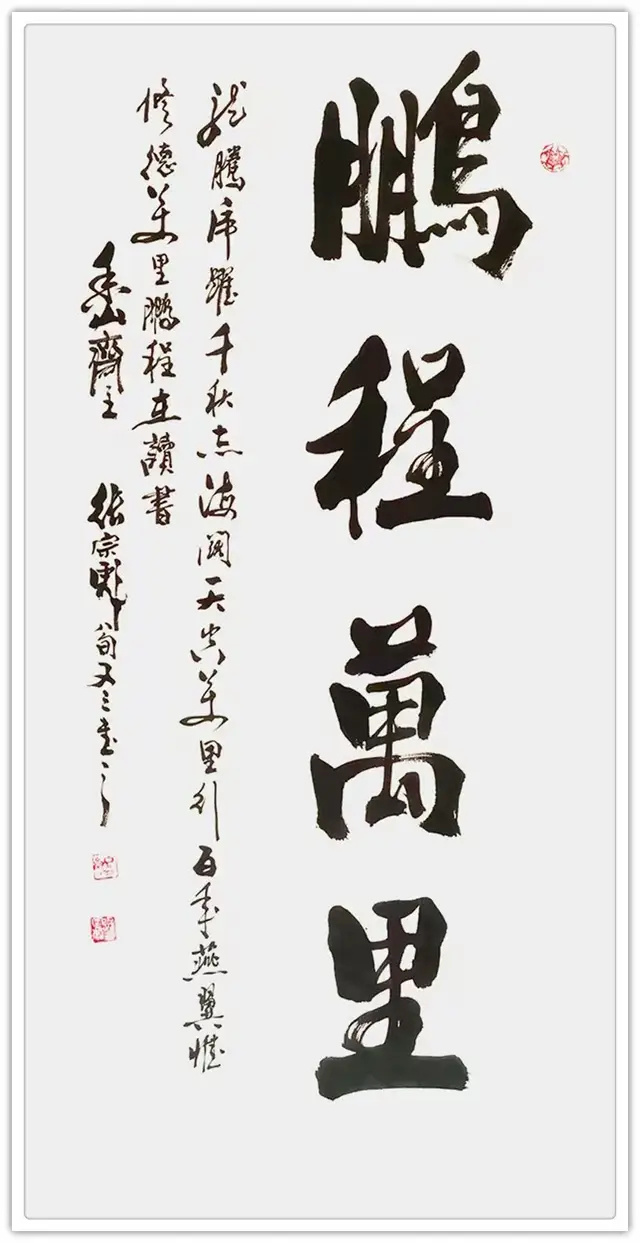 鵬程萬里
龍騰虎躍千秋志海闊天空萬里行百年燕翼惟
修德萬里鵬程在讀書
齋主 張宗彪八旬又三書